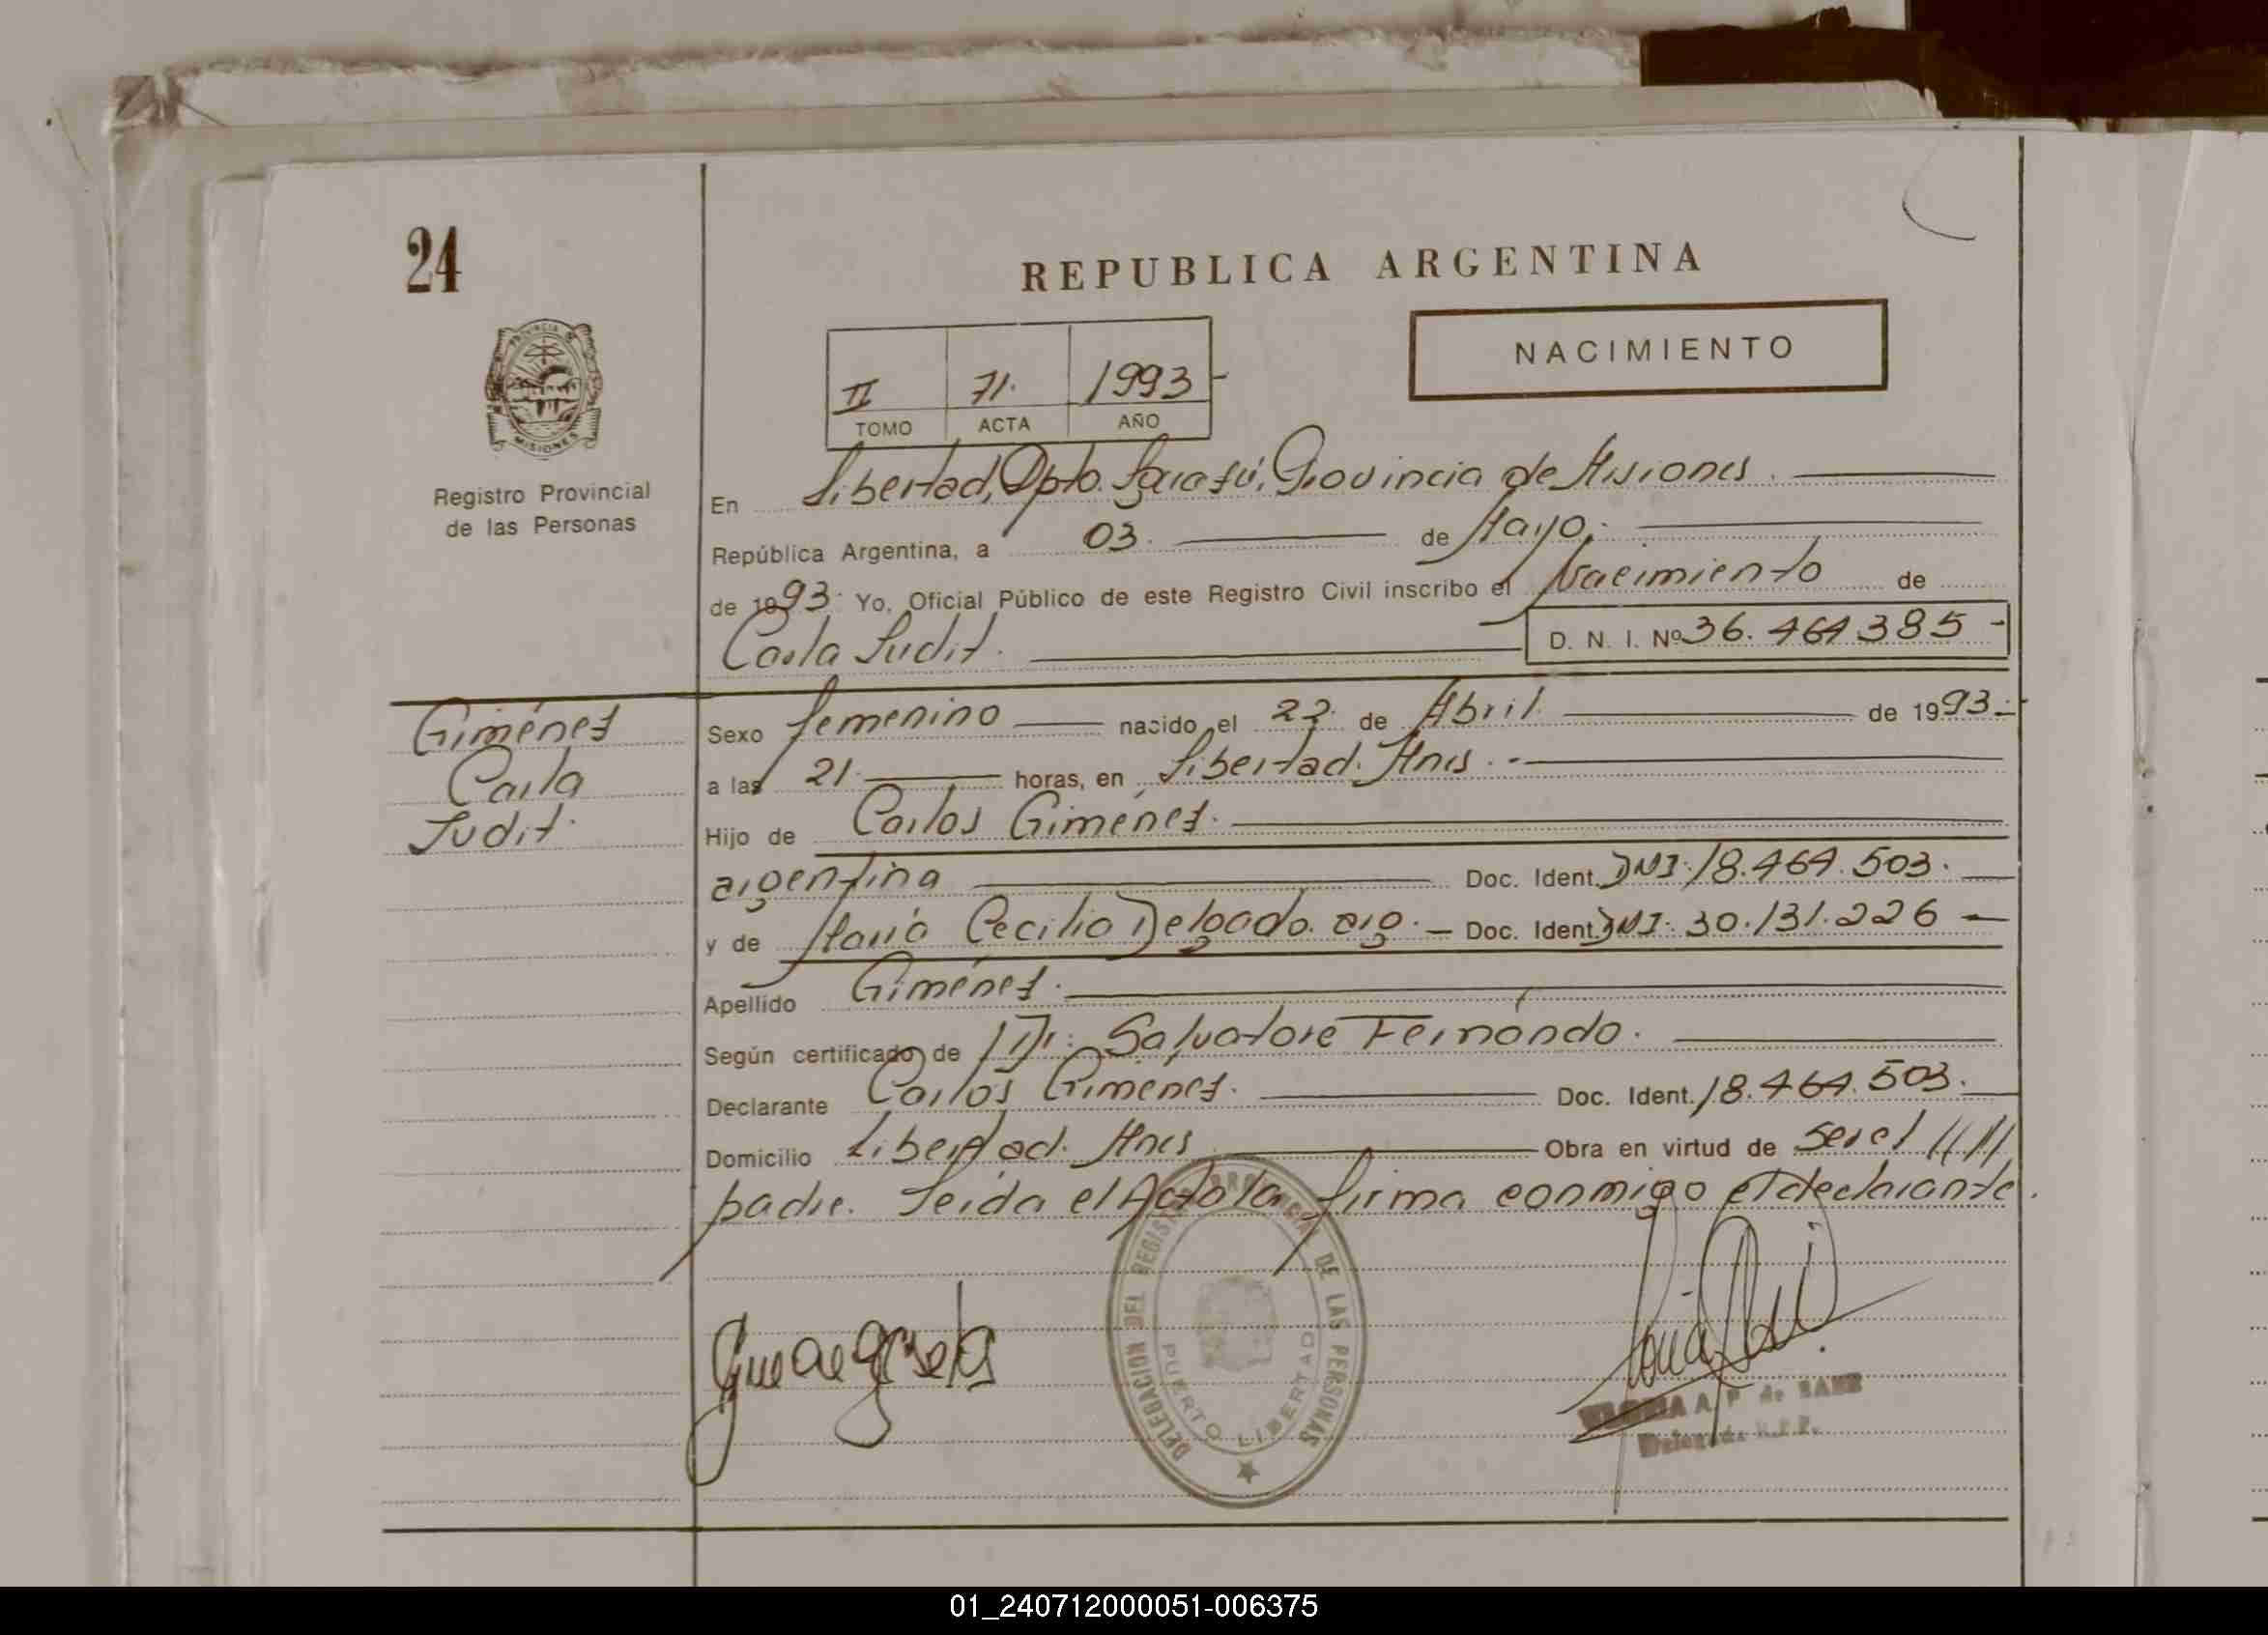 24
REPUBLICA ARGENTINA
NACIMIENTO
II 71. 1993-
TOMO ACTA AÑO
PROVINCIA DE MISIONES
Registro Provincial
de las Personas
En Libertad, Dpto. Iguazú, Provincia de Misiones.
República Argentina, a 03. de Mayo.
de 1993. Yo, Oficial Público de este Registro Civil inscribo el Nacimiento de
Carla Judit. D. N. I. Nº 36.464.385-
Giménez
Carla
Judit.
Sexo femenino nacido el 22. de Abril de 1993.-
a las 21. horas, en Libertad. Mnes.-
Hijo de Carlos Giménez.
argentina Doc. Ident. DNI: 18.464.503.
y de María Cecilia Delgado. arg.- Doc. Ident. DNI: 30.131.226-
Apellido Giménez.
Según certificado de Dr: Salvatore Fernándo.
Declarante Carlos Giménez. Doc. Ident. 18.464.503.
Domicilio Libertad. Mnes Obra en virtud de ser el
padre. Leida el Acta la firma conmigo el declarante.
DELEGACION DEL REGISTRO PROVINCIAL DE LAS PERSONAS
PUERTO LIBERTAD
A. P. de
Delegada R.P.P.
01_240712000051-006375